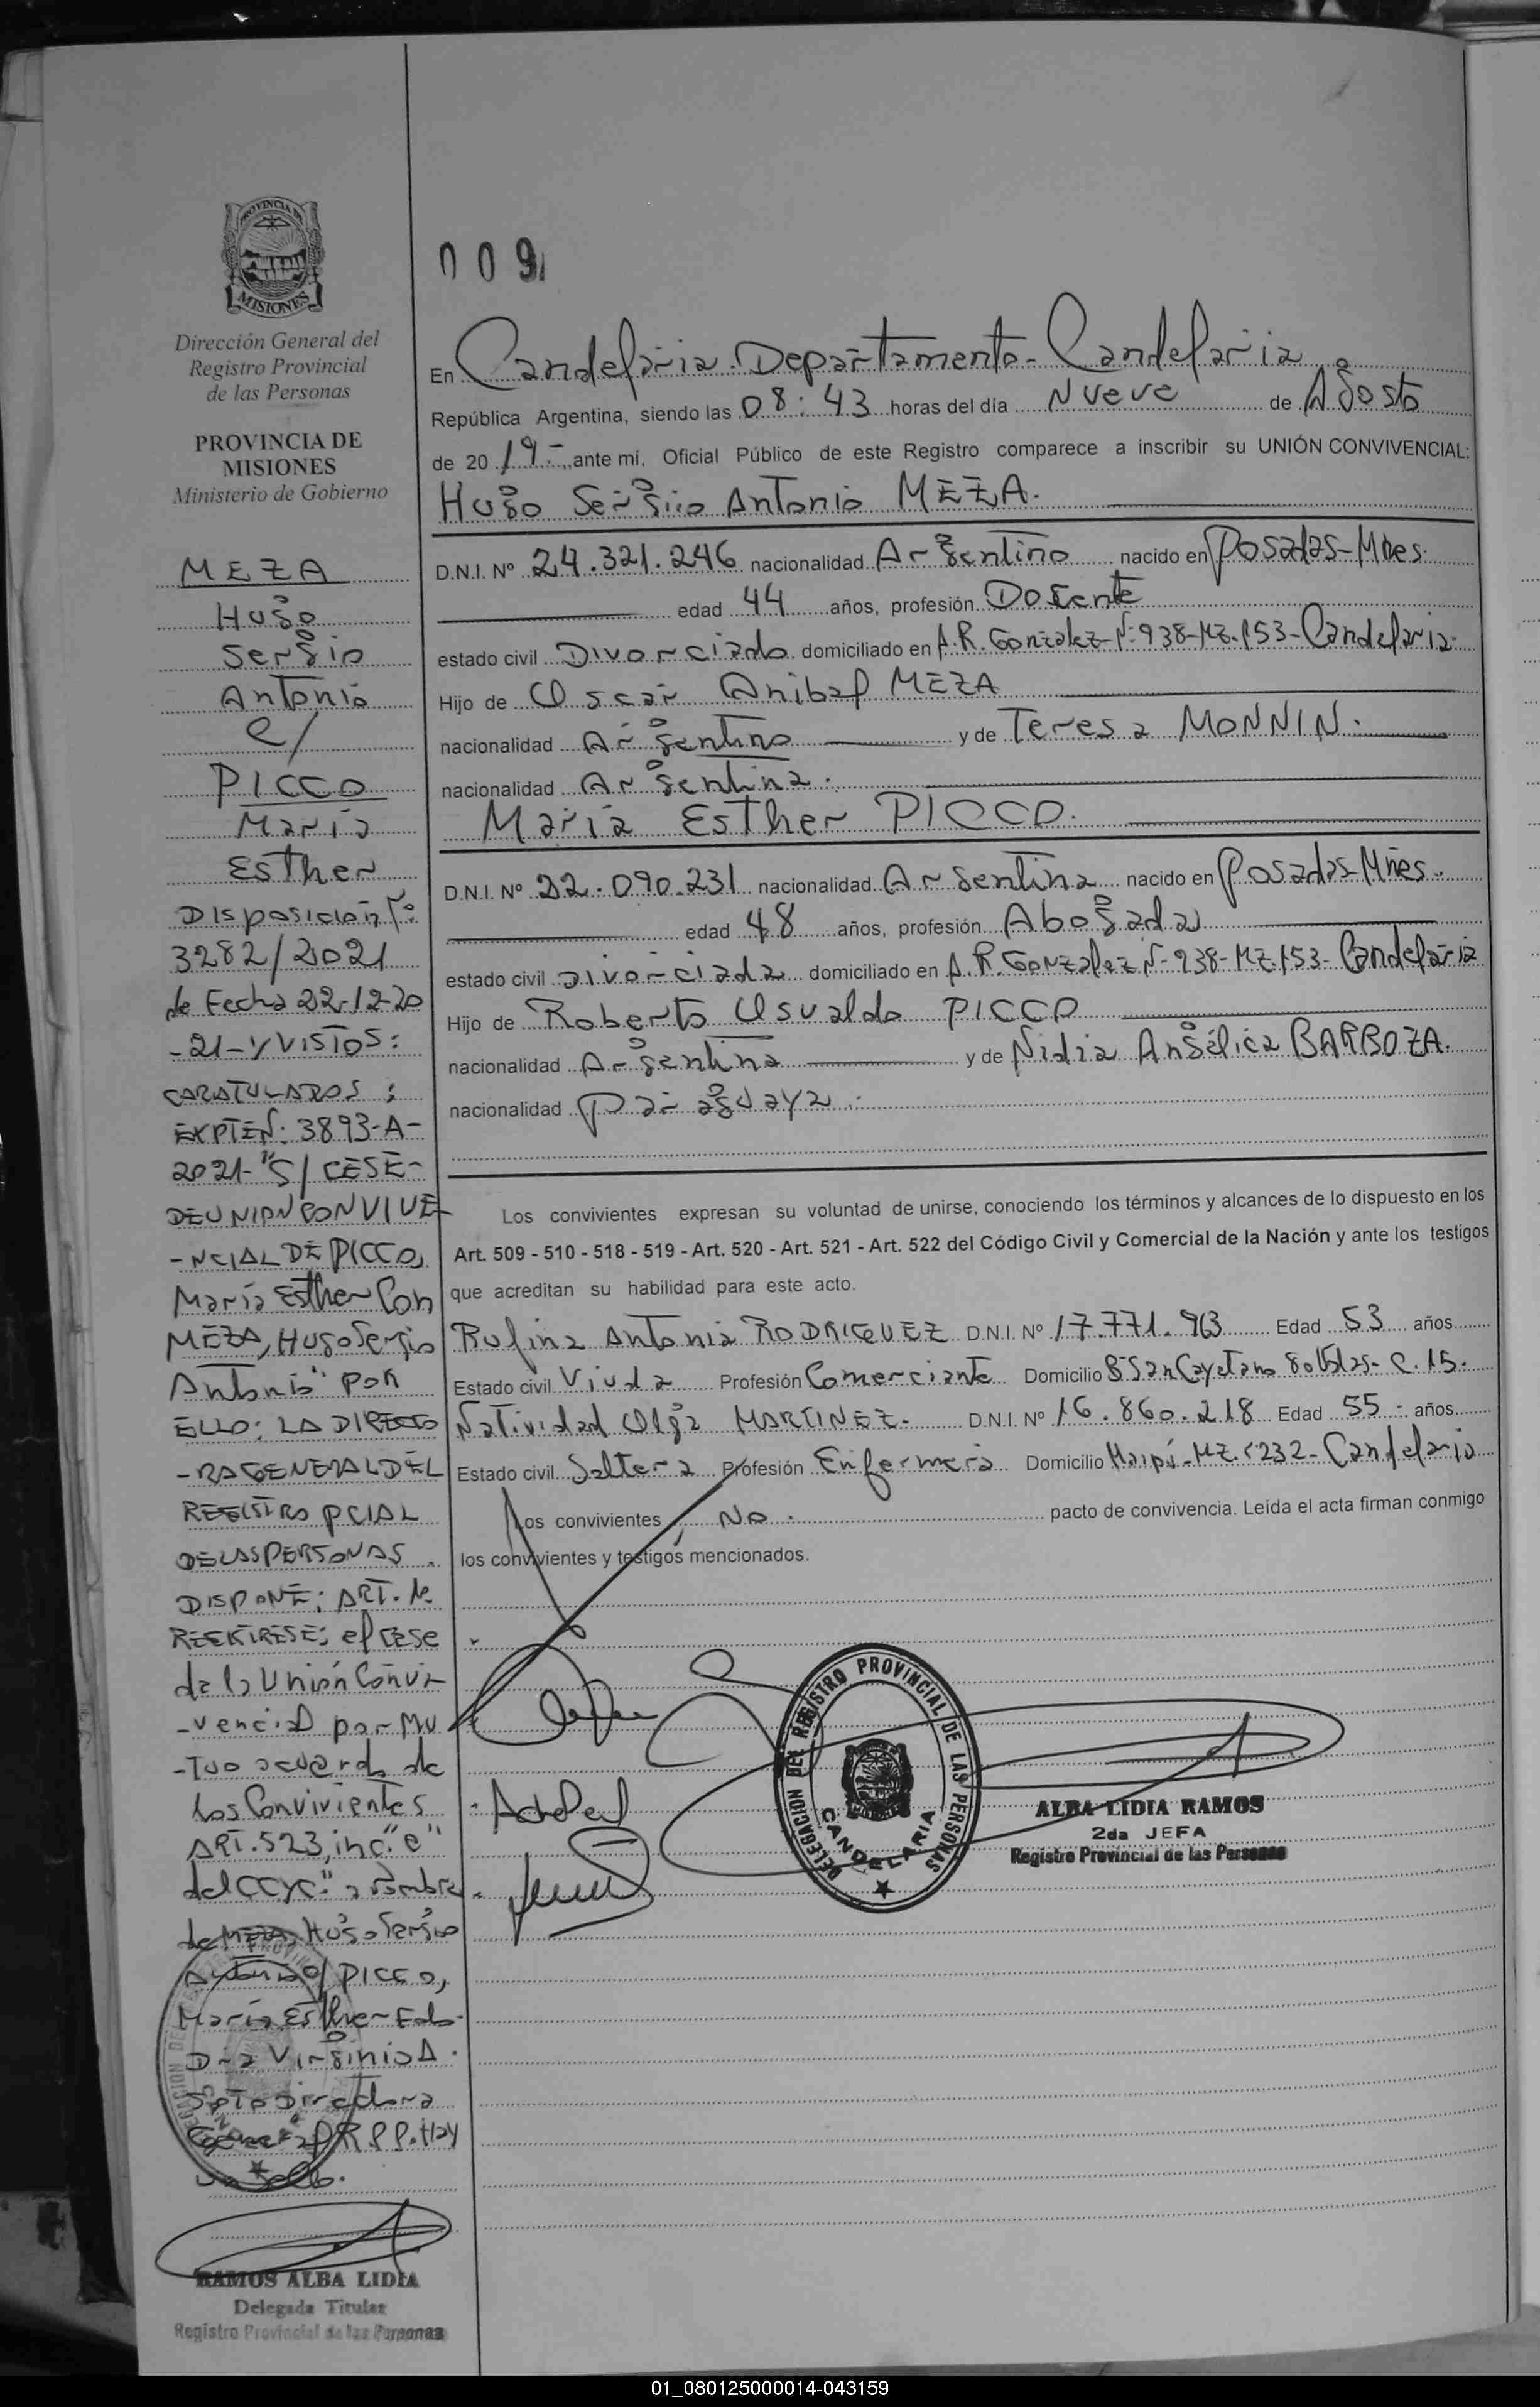 PROVINCIA DE
MISIONES
Dirección General del
Registro Provincial
de las Personas
PROVINCIA DE
MISIONES
Ministerio de Gobierno
MEZA
Hugo
Sergio
Antonio
c/
PICCO
María
Esther
Disposición Nº:
3282/2021
de Fecha 22-12-20
-21-y VISTOS:
CARATULADOS:
EXPTE Nº: 3893-A-
2021-"S/CESE-
DE UNION CONVIVE
-NCIAL DE PICCO,
María Esther Con
MEZA, Hugo Sergio
Antonio" por
ELLO: LA DIRECTO
-RA GENERAL DEL
REGISTRO PCIAL
DE LAS PERSONAS.
DISPONE: ART. 1º
REGISTRESE: el cese
de la Unión Convi-
-vencial por Mu
-tuo acuerdo de
los Convivientes
ART. 523, inc. "e"
del CCyC." a nombre
de MEZA, Hugo Sergio
Antonio c/ PICCO,
María Esther- Fdo.
Dra Virginia A.
Directora
General R.P.P. Hay
un Sello.
RAMOS ALBA LIDIA
Delegada Titular
Registro Provincial de las Personas
009
En Candelaria. Departamento- Candelaria
República Argentina, siendo las 08:43 horas del día Nueve de Agosto
de 20 19.- ,ante mí, Oficial Público de este Registro comparece a inscribir su UNIÓN CONVIVENCIAL:
Hugo Sergiio Antonio MEZA.
D.N.I. Nº 24.321.246 nacionalidad Argentino nacido en Posadas-Mnes.
edad 44 años, profesión Docente
estado civil Divorciado domiciliado en A.R. Gonzalez-Nº:938-Mz.153-Candelaria.
Hijo de Oscar Anibal MEZA
nacionalidad Argentino y de Teresa MONNIN.
nacionalidad Argentina.
María Esther PICCO.
D.N.I. Nº 22.090.231 nacionalidad Argentina nacido en Posadas-Mnes.
edad 48 años, profesión Abogada
estado civil divorciada domiciliado en A.R. Gonzalez Nº-938-Mz.153-Candelaria
Hijo de Roberto Osvaldo PICCO
nacionalidad Argentina y de Nidia Angélica BARBOZA.
nacionalidad paraguaya.
Los convivientes expresan su voluntad de unirse, conociendo los términos y alcances de lo dispuesto en los
Art. 509 - 510 - 518 - 519 - Art. 520 - Art. 521 - Art. 522 del Código Civil y Comercial de la Nación y ante los testigos
que acreditan su habilidad para este acto.
Rufina Antonia RODRIGUEZ D.N.I. Nº 17.771. Edad 53 años
Estado civil Viuda Profesión Comerciante Domicilio Bº San Cayetano C.15.
Natividad Olga MARTINEZ. D.N.I. Nº 16.860.218 Edad 55 años
Estado civil Soltera Profesión Enfermera Domicilio Maipú-Mz. Candelaria
Los convivientes, No. pacto de convivencia. Leída el acta firman conmigo
los convivientes y testigos mencionados.
DELEGACION DEL REGISTRO PROVINCIAL DE LAS PERSONAS
CANDELARIA
ALBA LIDIA RAMOS
2da JEFA
Registro Provincial de las Personas
01_080125000014-043159